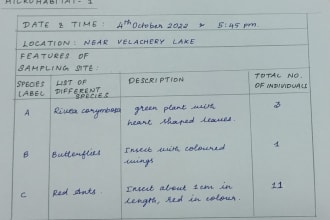 MICROHABITAT - 1
DATE & TIME: 4th October 2022 & 5:45 pm
LOCATION: NEAR VELACHERY LAKE
FEATURES OF SAMPLING SITE:
SPECIES LABEL LIST OF DIFFERENT SPECIES DESCRIPTION TOTAL NO. OF INDIVIDUALS
A Rivea corymbosa green plant with heart shaped leaves. 3
B Butterflies Insect with coloured wings 1
C Red Ants. Insect about 1cm in length, red in colour. 11